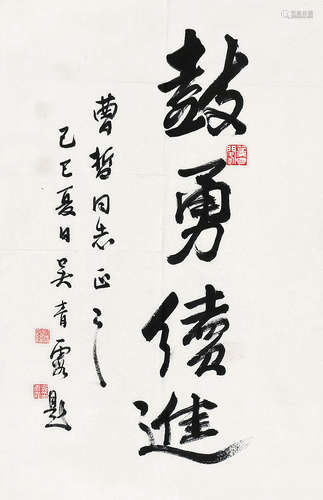 鼓勇續進
曹哲同志正之
己巳夏日吴青霞題